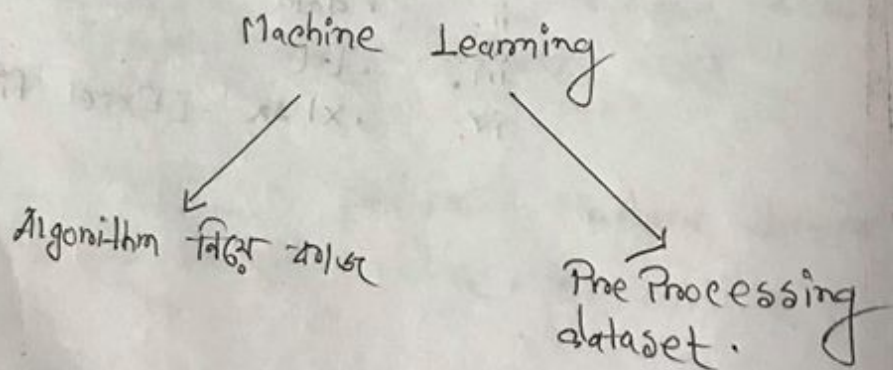 Machine Learning
Algorithm নিয়ে কাজ
Pre Processing
dataset.